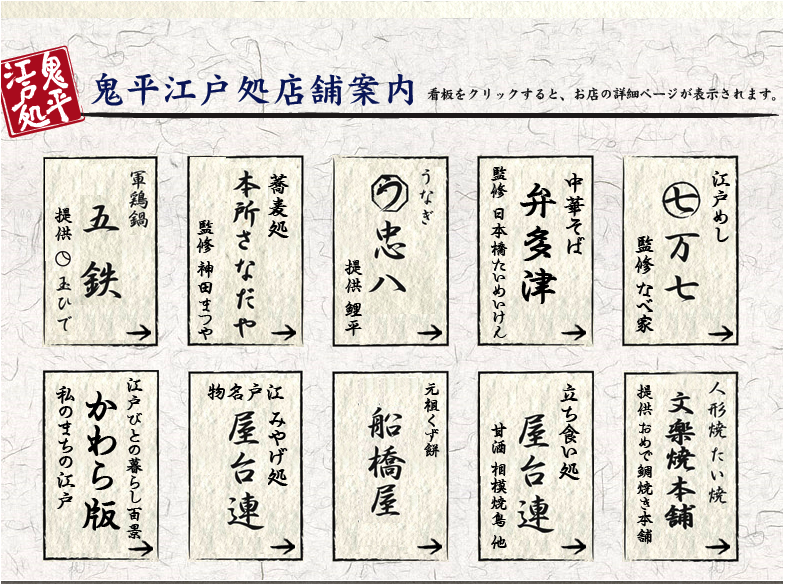 鬼平
江戸処
鬼平江戸処店舗案内
看板をクリックすると、お店の詳細ページが表示されます。
軍鶏鍋
五鉄
提供 玉ひで
蕎麦処
本所さなだや
監修 神田まつや
うなぎ
う
忠八
提供 鯉平
中華そば
弁多津
監修 日本橋たいめいけん
江戸めし
七
万七
監修 なべ家
江戸びとの暮らし百景
かわら版
私のまちの江戸
江戸名物
みやげ処
屋台連
元祖くず餅
船橋屋
立ち食い処
屋台連
甘酒 相模焼鳥 他
人形焼 たい焼
文楽焼本舗
提供 おめで鯛焼き本舗